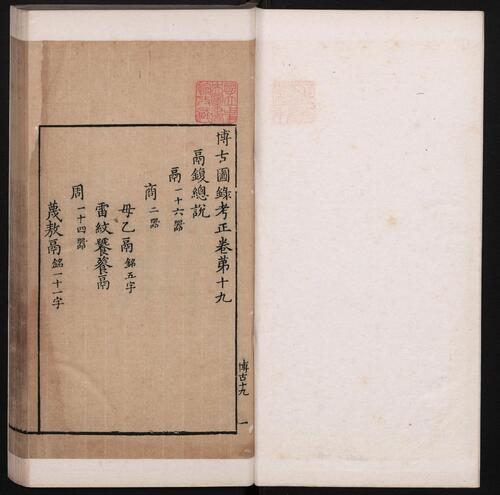 博古圖錄考正卷第十九
鬲鍑總說
鬲一十六器
商二器
母乙鬲銘五字
雷紋饕餮鬲
周一十四器
蔑敖鬲銘一十一字
博古十九
一